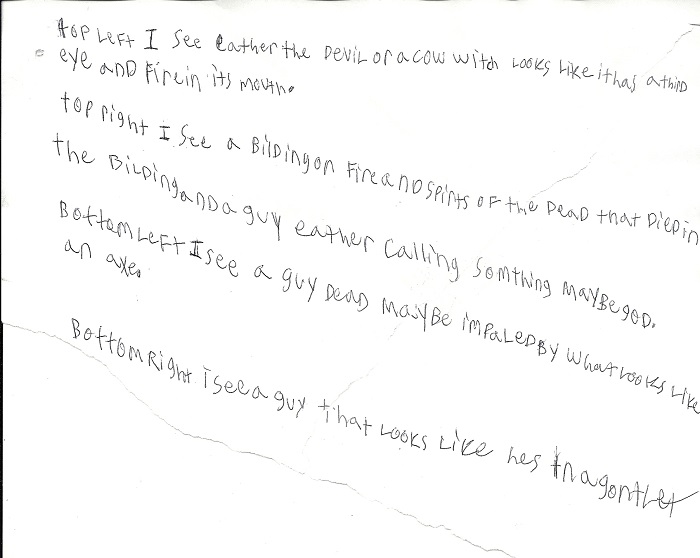 top Left I See Eather the DEViL or a cow witch Looks Like it has a third
eye and Fire in its mouth.
top right I See a BiLDing on Fire and Spirits of the Dead that Died in
the BiLDing and a guy eather Calling Somthing MayBe goD.
Bottom Left I See a guy DeaD MayBe impaLeD By what Looks Like
an axe.
Bottom Right I see a guy that Looks Like hes In a gontLet